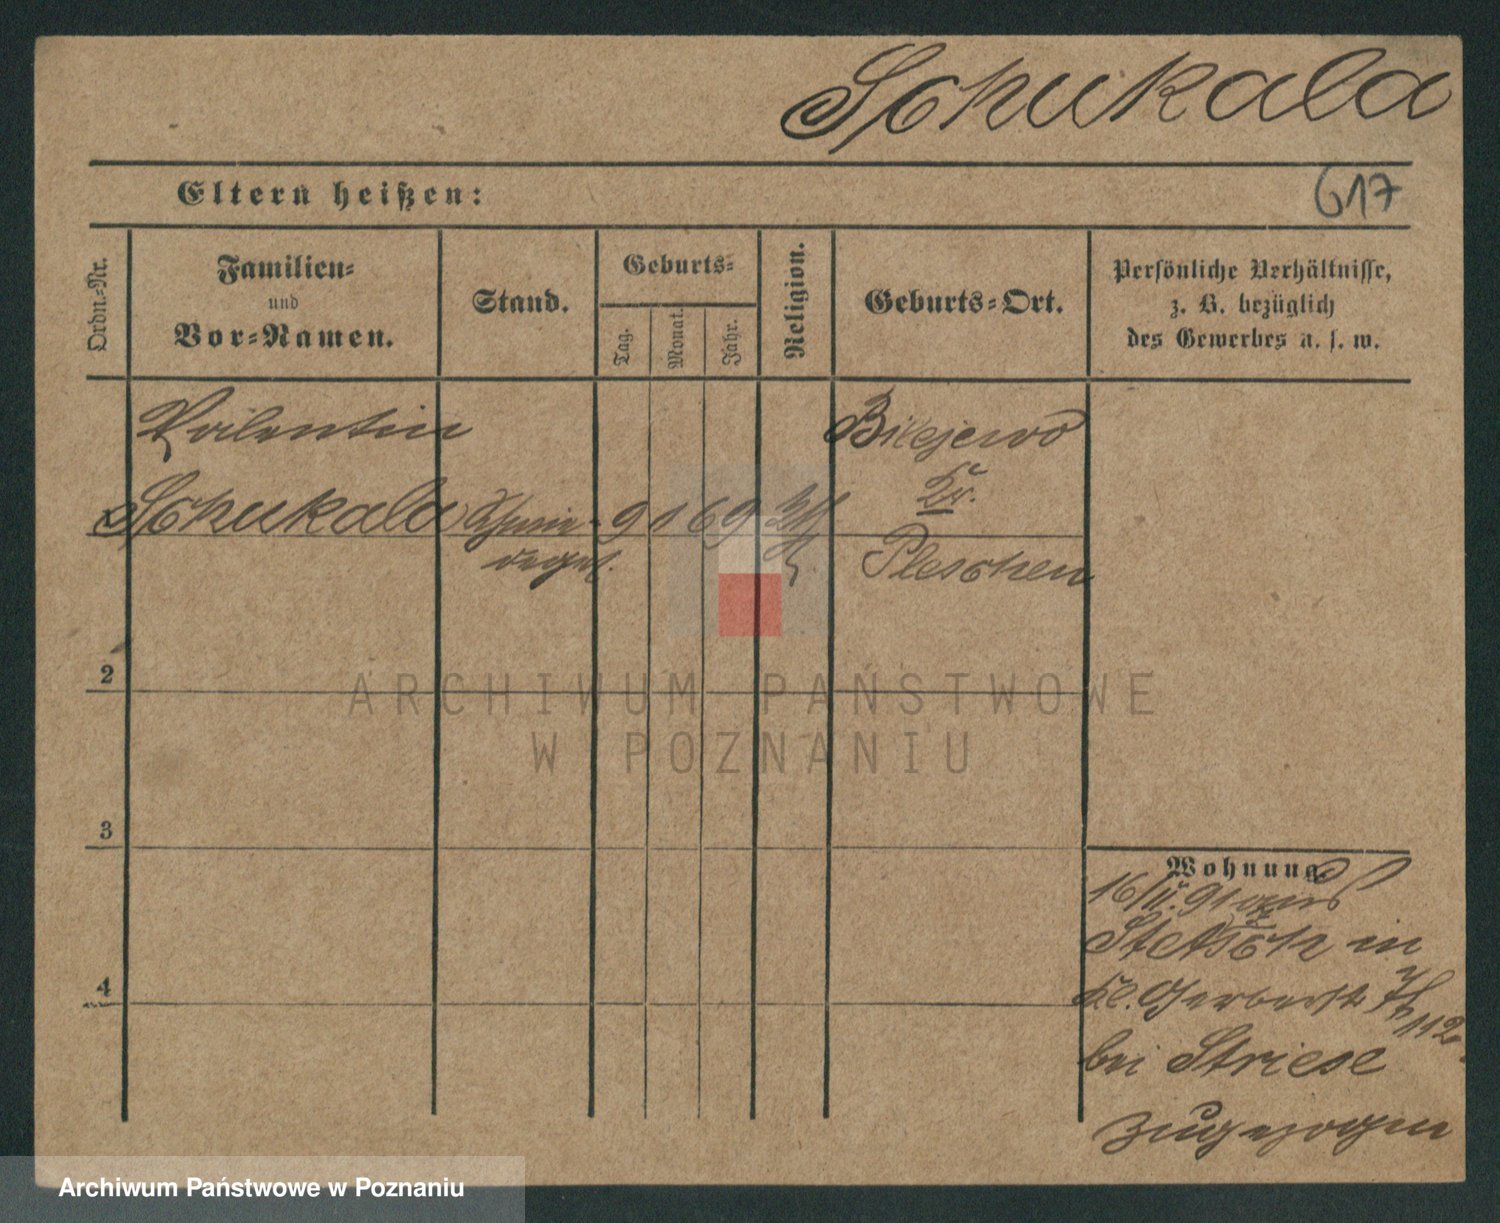 Schukala
617
Eltern heißen:
Ordn.-Nr.
Familien-
und
Vor-Namen.
Stand.
Geburts-
Tag.
Monat.
Jahr.
Religion.
Geburts-Ort.
Persönliche Verhältnisse,
z. B. bezüglich
des Gewerbes u. s. w.
Valentin
Schukala
Schmie-
degel.
9 1 69
Bilejewo
Kr.
Pleschen
1
2
3
4
Wohnung.
16/II. 91 aus
in
Kl. Gerberstr. 7/8
112
bei Striese
zugezogen
ARCHIWUM PAŃSTWOWE
W POZNANIU
Archiwum Państwowe w Poznaniu